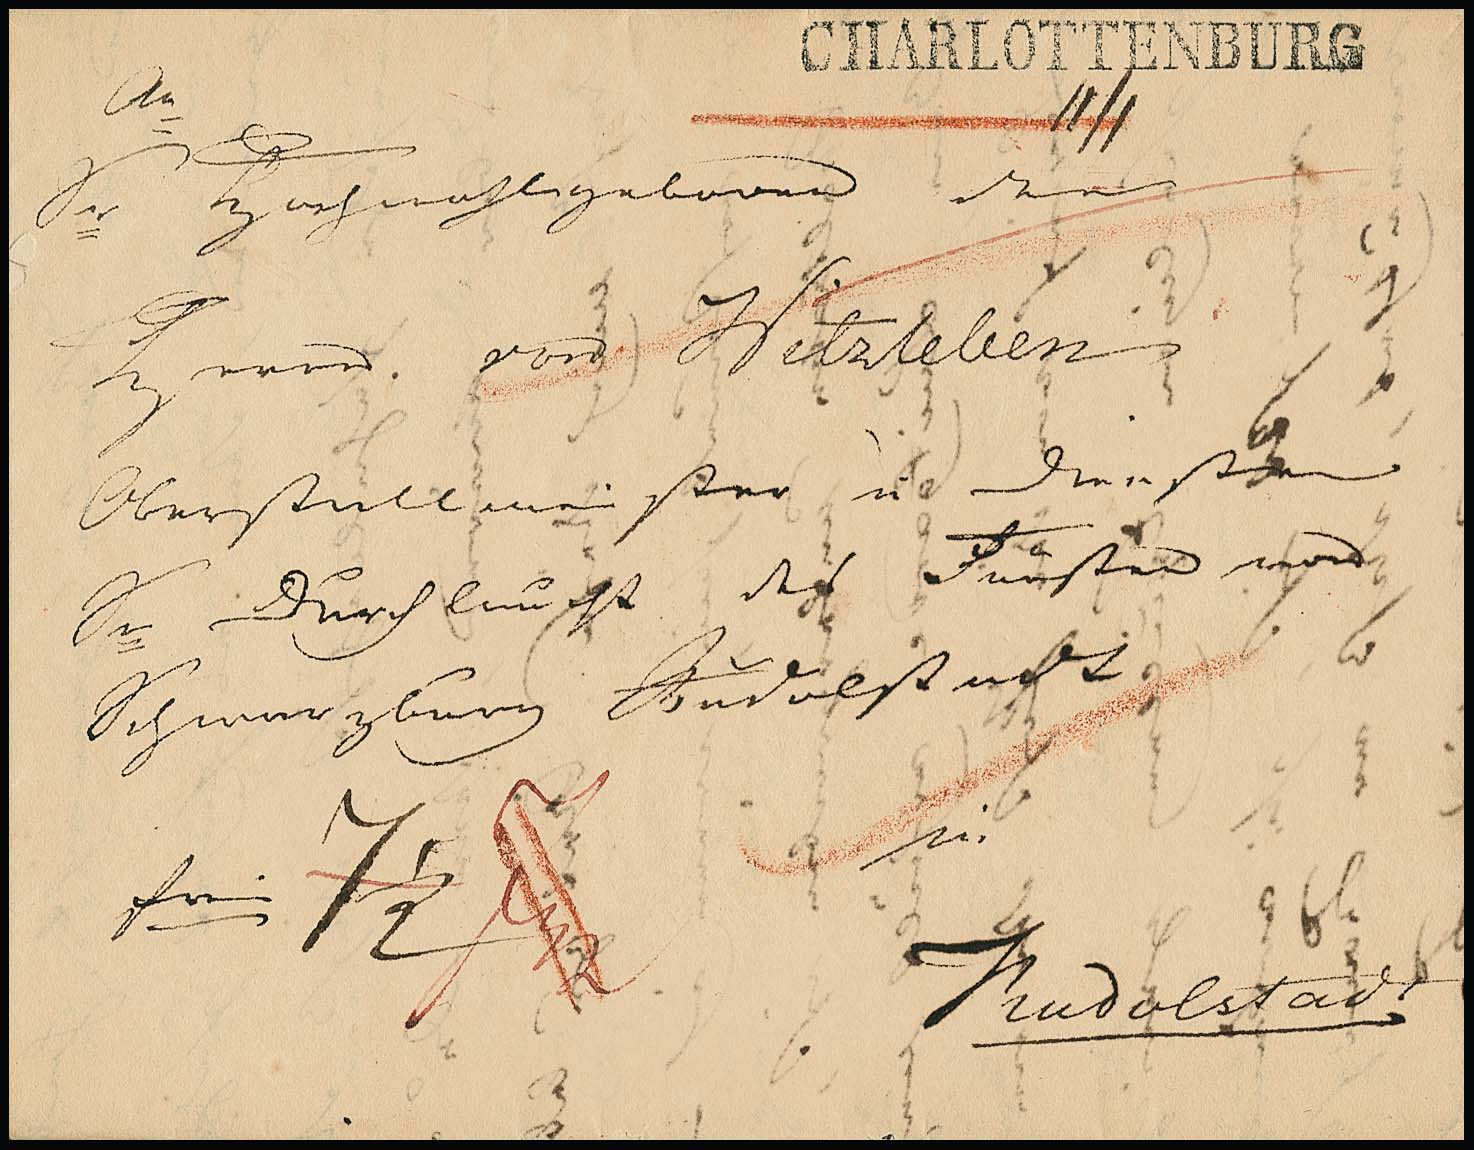 CHARLOTTENBURG
11/1
An
Sr Hochwohlgeboren den
Herrn von Witzleben
Oberstallmeister in Diensten
Sr Durchlaucht des Fürsten von
Schwarzburg Rudolstadt
frei 7½
in
Rudolstadt